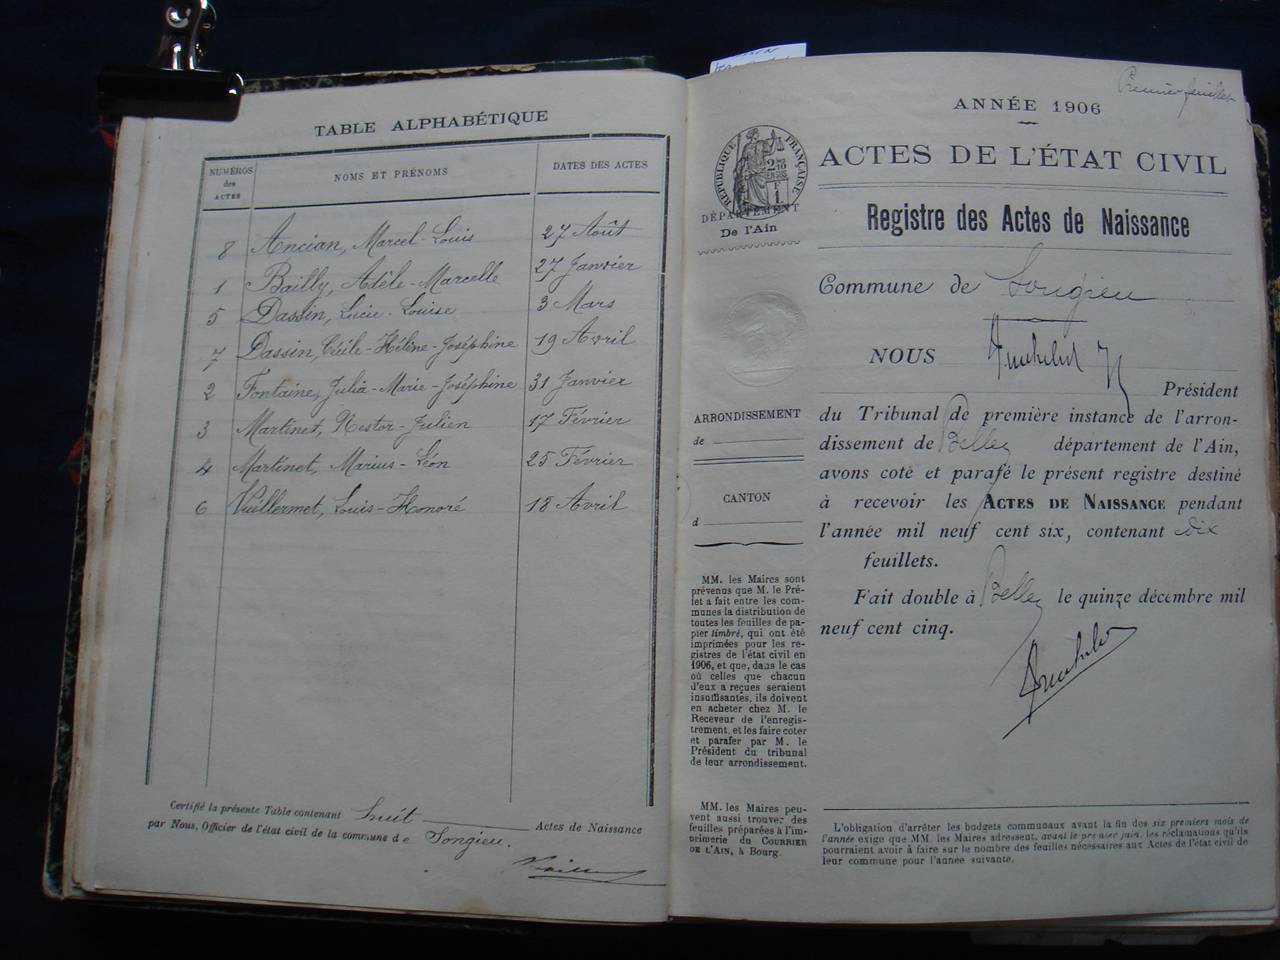 TABLE ALPHABÉTIQUE
NUMÉROS des ACTES
NOMS ET PRÉNOMS
DATES DES ACTES
8 Ancian, Marcel-Louis 27 Août
1 Bailly, Adèle-Marcelle 27 Janvier
5 Dassin, Lucie-Louise 3 Mars
7 Dassin, Cécile-Hélène-Joséphine 19 Avril
2 Fontaine, Julia-Marie-Joséphine 31 Janvier
3 Martinet, Nestor-Julien 17 Février
4 Martinet, Marius-Léon 25 Février
6 Vuillermet, Louis-Honoré 18 Avril
Certifié la présente Table contenant huit Actes de Naissance
par Nous, Officier de l'état civil de la commune de Songieu.
Premier feuillet
ANNÉE 1906
ACTES DE L'ÉTAT CIVIL
Registre des Actes de Naissance
RÉPUBLIQUE FRANÇAISE
DÉPARTEMENT
De l'Ain
Commune de Songieu
NOUS
Président
du Tribunal de première instance de l'arron-
dissement de Belley département de l'Ain,
avons coté et parafé le présent registre destiné
à recevoir les ACTES DE NAISSANCE pendant
l'année mil neuf cent six, contenant dix
feuillets.
Fait double à Belley le quinze décembre mil
neuf cent cinq.
ARRONDISSEMENT
de
CANTON
d
MM. les Maires sont
prévenus que M. le Pré-
fet a fait entre les com-
munes la distribution de
toutes les feuilles de pa-
pier timbré, qui ont été
imprimées pour les re-
gistres de l'état civil en
1906, et que, dans le cas
où celles que chacun
d'eux a reçues seraient
insuffisantes, ils doivent
en acheter chez M. le
Receveur de l'enregis-
trement, et les faire coter
et parafer par M. le
Président du tribunal
de leur arrondissement.
MM. les Maires peu-
vent aussi trouver des
feuilles préparées à l'im-
primerie du COURRIER
DE L'AIN, à Bourg.
L'obligation d'arrêter les budgets communaux avant la fin des six premiers mois de
l'année exige que MM. les Maires adressent, avant le premier juin, les réclamations qu'ils
pourraient avoir à faire sur le nombre des feuilles nécessaires aux Actes de l'état civil de
leur commune pour l'année suivante.